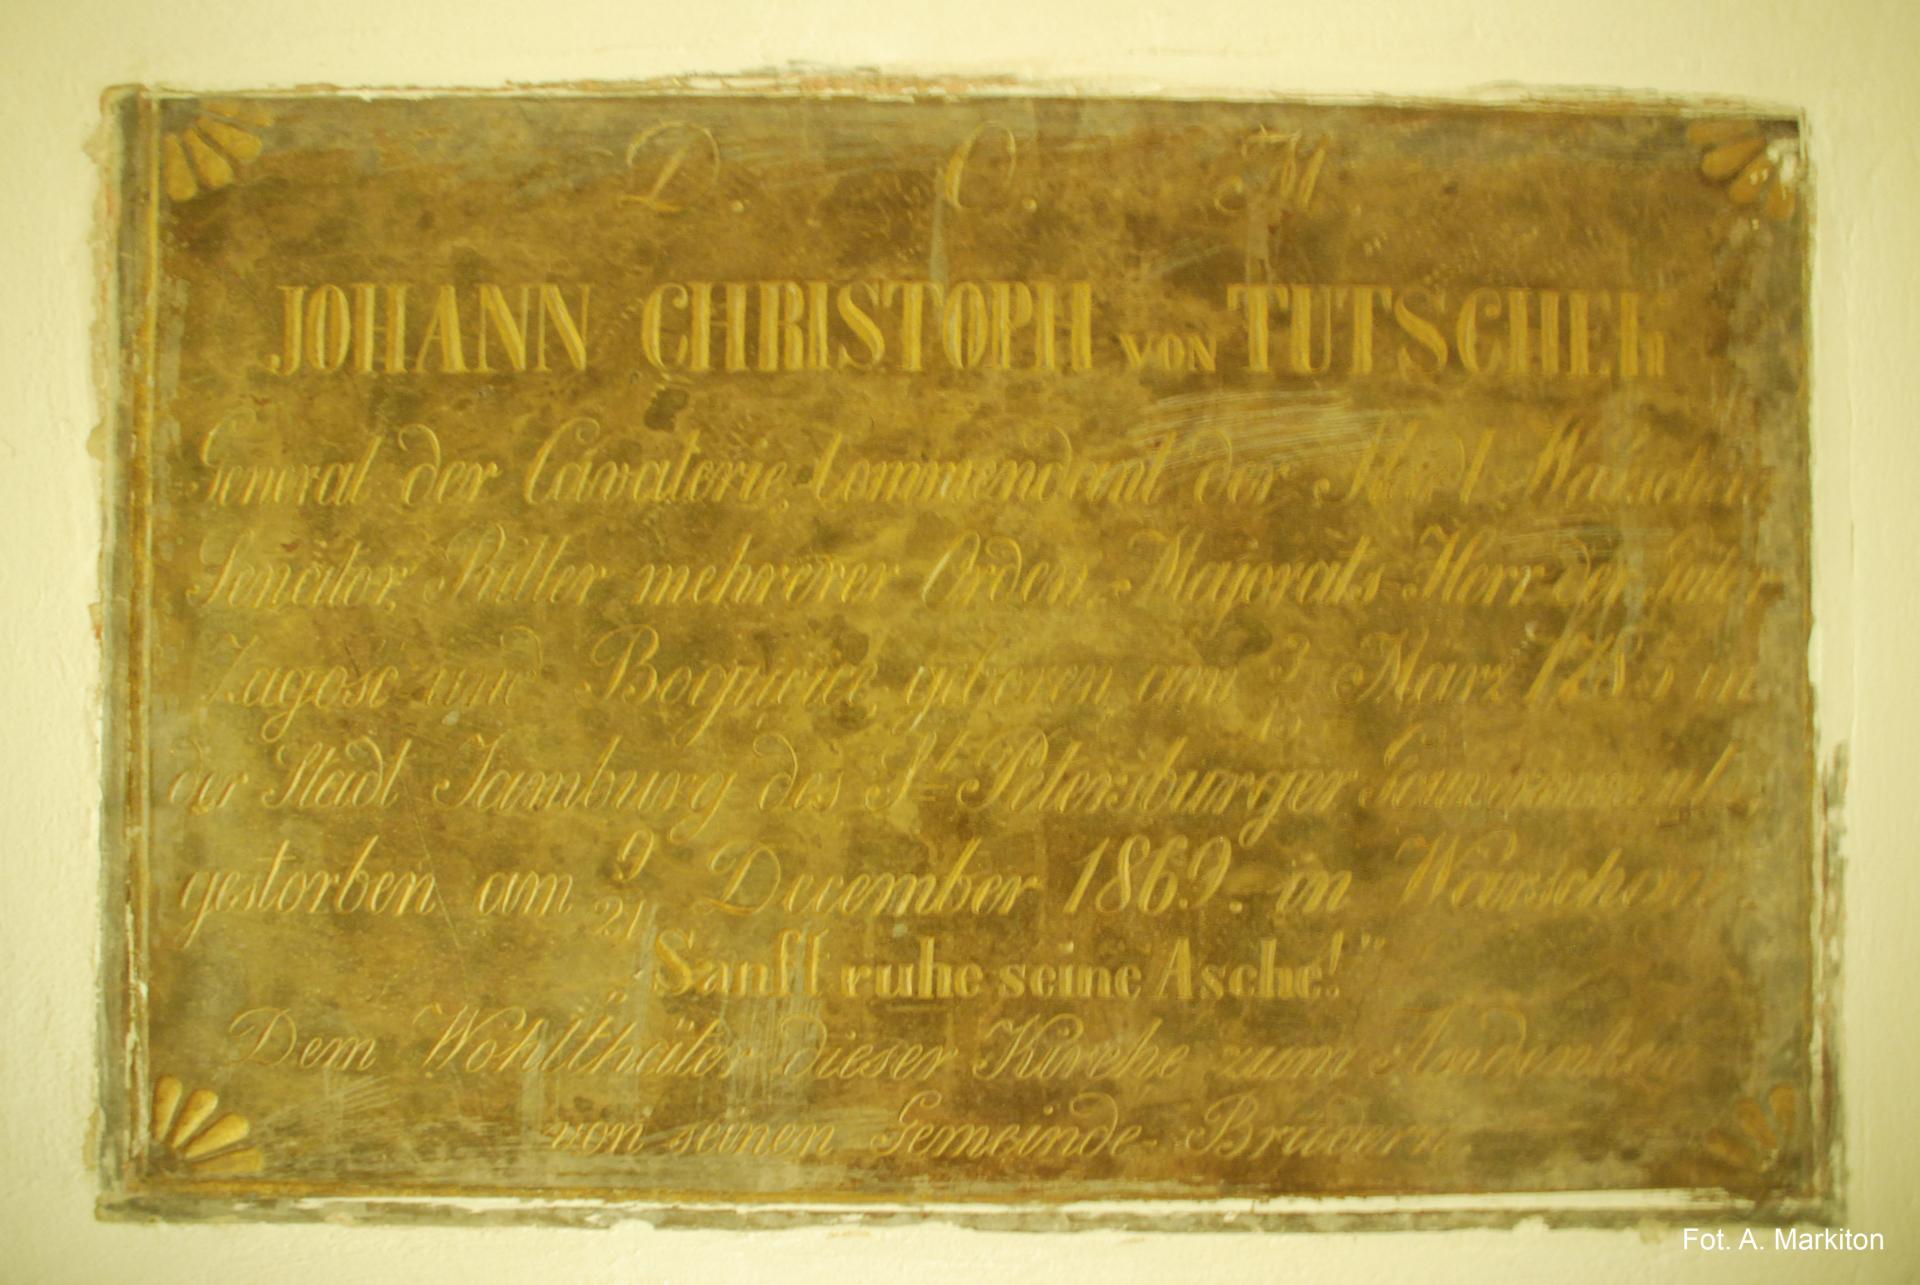 D. C. M
JOHANN CHRISTOPH VON TUTSCHEK
General der Cavalerie, Commendant der Stadt Warschau
Senator, Ritter mehrerer Orden, Majorats Herr der Güter
Zagość und geboren am 3 März in
15
der Stadt Jamburg des St Petersburger Gouvernements,
gestorben am 9/21 December 1869. in Warschau.
„Sanft ruhe seine Asche!"
Dem Wohlthäter dieser Kirche zum Andenken
von seinen Gemeinde-Brüdern
Fot. A. Markiton